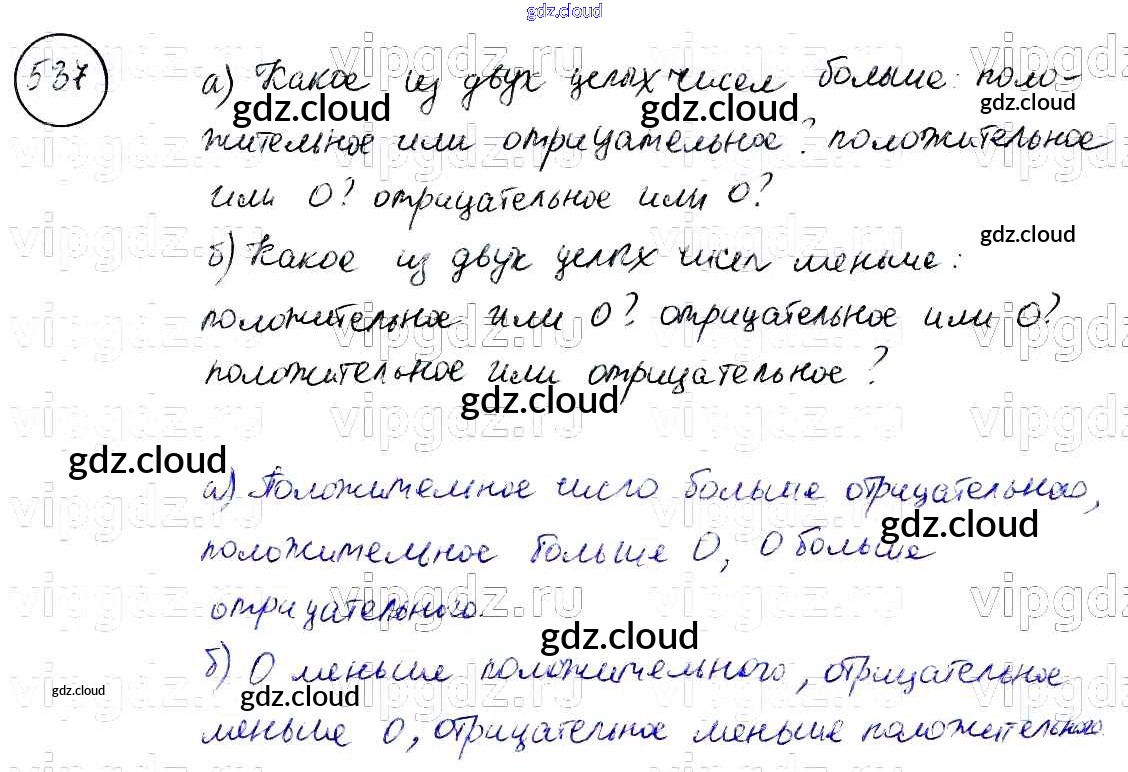 gdz.cloud
537
а) Какое из двух целых чисел больше: поло-
жительное или отрицательное? положительное
или 0? отрицательное или 0?
б) Какое из двух целых чисел меньше:
положительное или 0? отрицательное или 0?
положительное или отрицательное?
а) Положительное число больше отрицательного,
положительное больше 0, 0 больше
отрицательного.
б) 0 меньше положительного, отрицательное
меньше 0, отрицательное меньше положительного.
gdz.cloud
gdz.cloud
gdz.cloud
gdz.cloud
gdz.cloud
gdz.cloud
gdz.cloud
gdz.cloud
gdz.cloud
gdz.cloud
vipgdz.ru